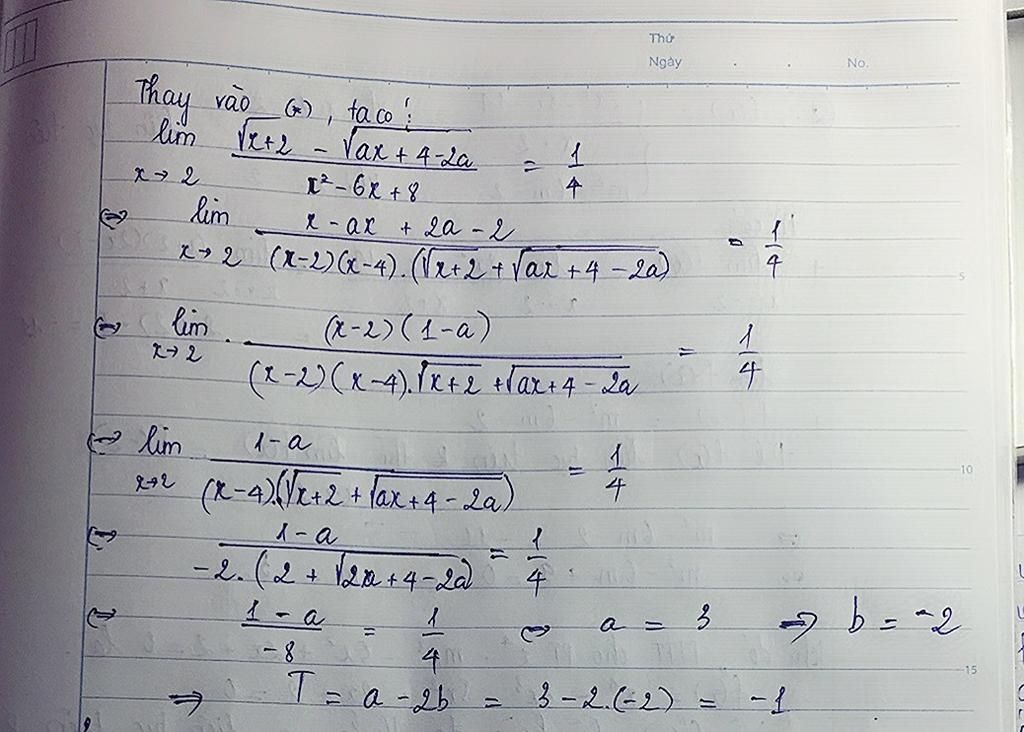 Thứ
Ngày . . No.
Thay vào (*), ta có:
lim x→2 (√x+2 - √ax+4-2a) / (x²-6x+8) = 1/4
⇔ lim x→2 (x - ax + 2a - 2) / ((x-2)(x-4).(√x+2 + √ax+4-2a)) = 1/4
⇔ lim x→2 . ((x-2)(1-a)) / ((x-2)(x-4).√x+2 + √ax+4-2a) = 1/4
⇔ lim x→2 (1-a) / ((x-4).(√x+2 + √ax+4-2a)) = 1/4
⇔ (1-a) / (-2.(2 + √2a+4-2a)) = 1/4
⇔ (1-a) / -8 = 1/4 ⇔ a = 3 ⇒ b = -2
⇒ T = a - 2b = 3 - 2.(-2) = -1
5
10
15